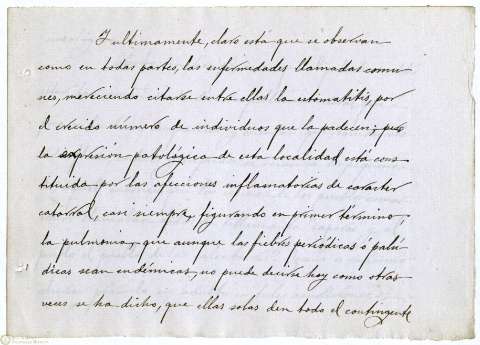 Y ultimamente, claro esta que se observan
como en todas partes, las enfermedades llamadas comu
nes, mereciendo citarse entre ellas la estomatitis, por
el crecido número de individuos que la padecen; pero
la expresión patológica de esta localidad está cons-
tituida por las afecciones inflamatorias de caracter
catarral, casi siempre, figurando en primer término,
la pulmonia, que aunque las fiebres periódicas ó palú-
dicas sean endémicas, no puede decirse hoy como otras
veces se ha dicho, que ellas solas den todo el contingente